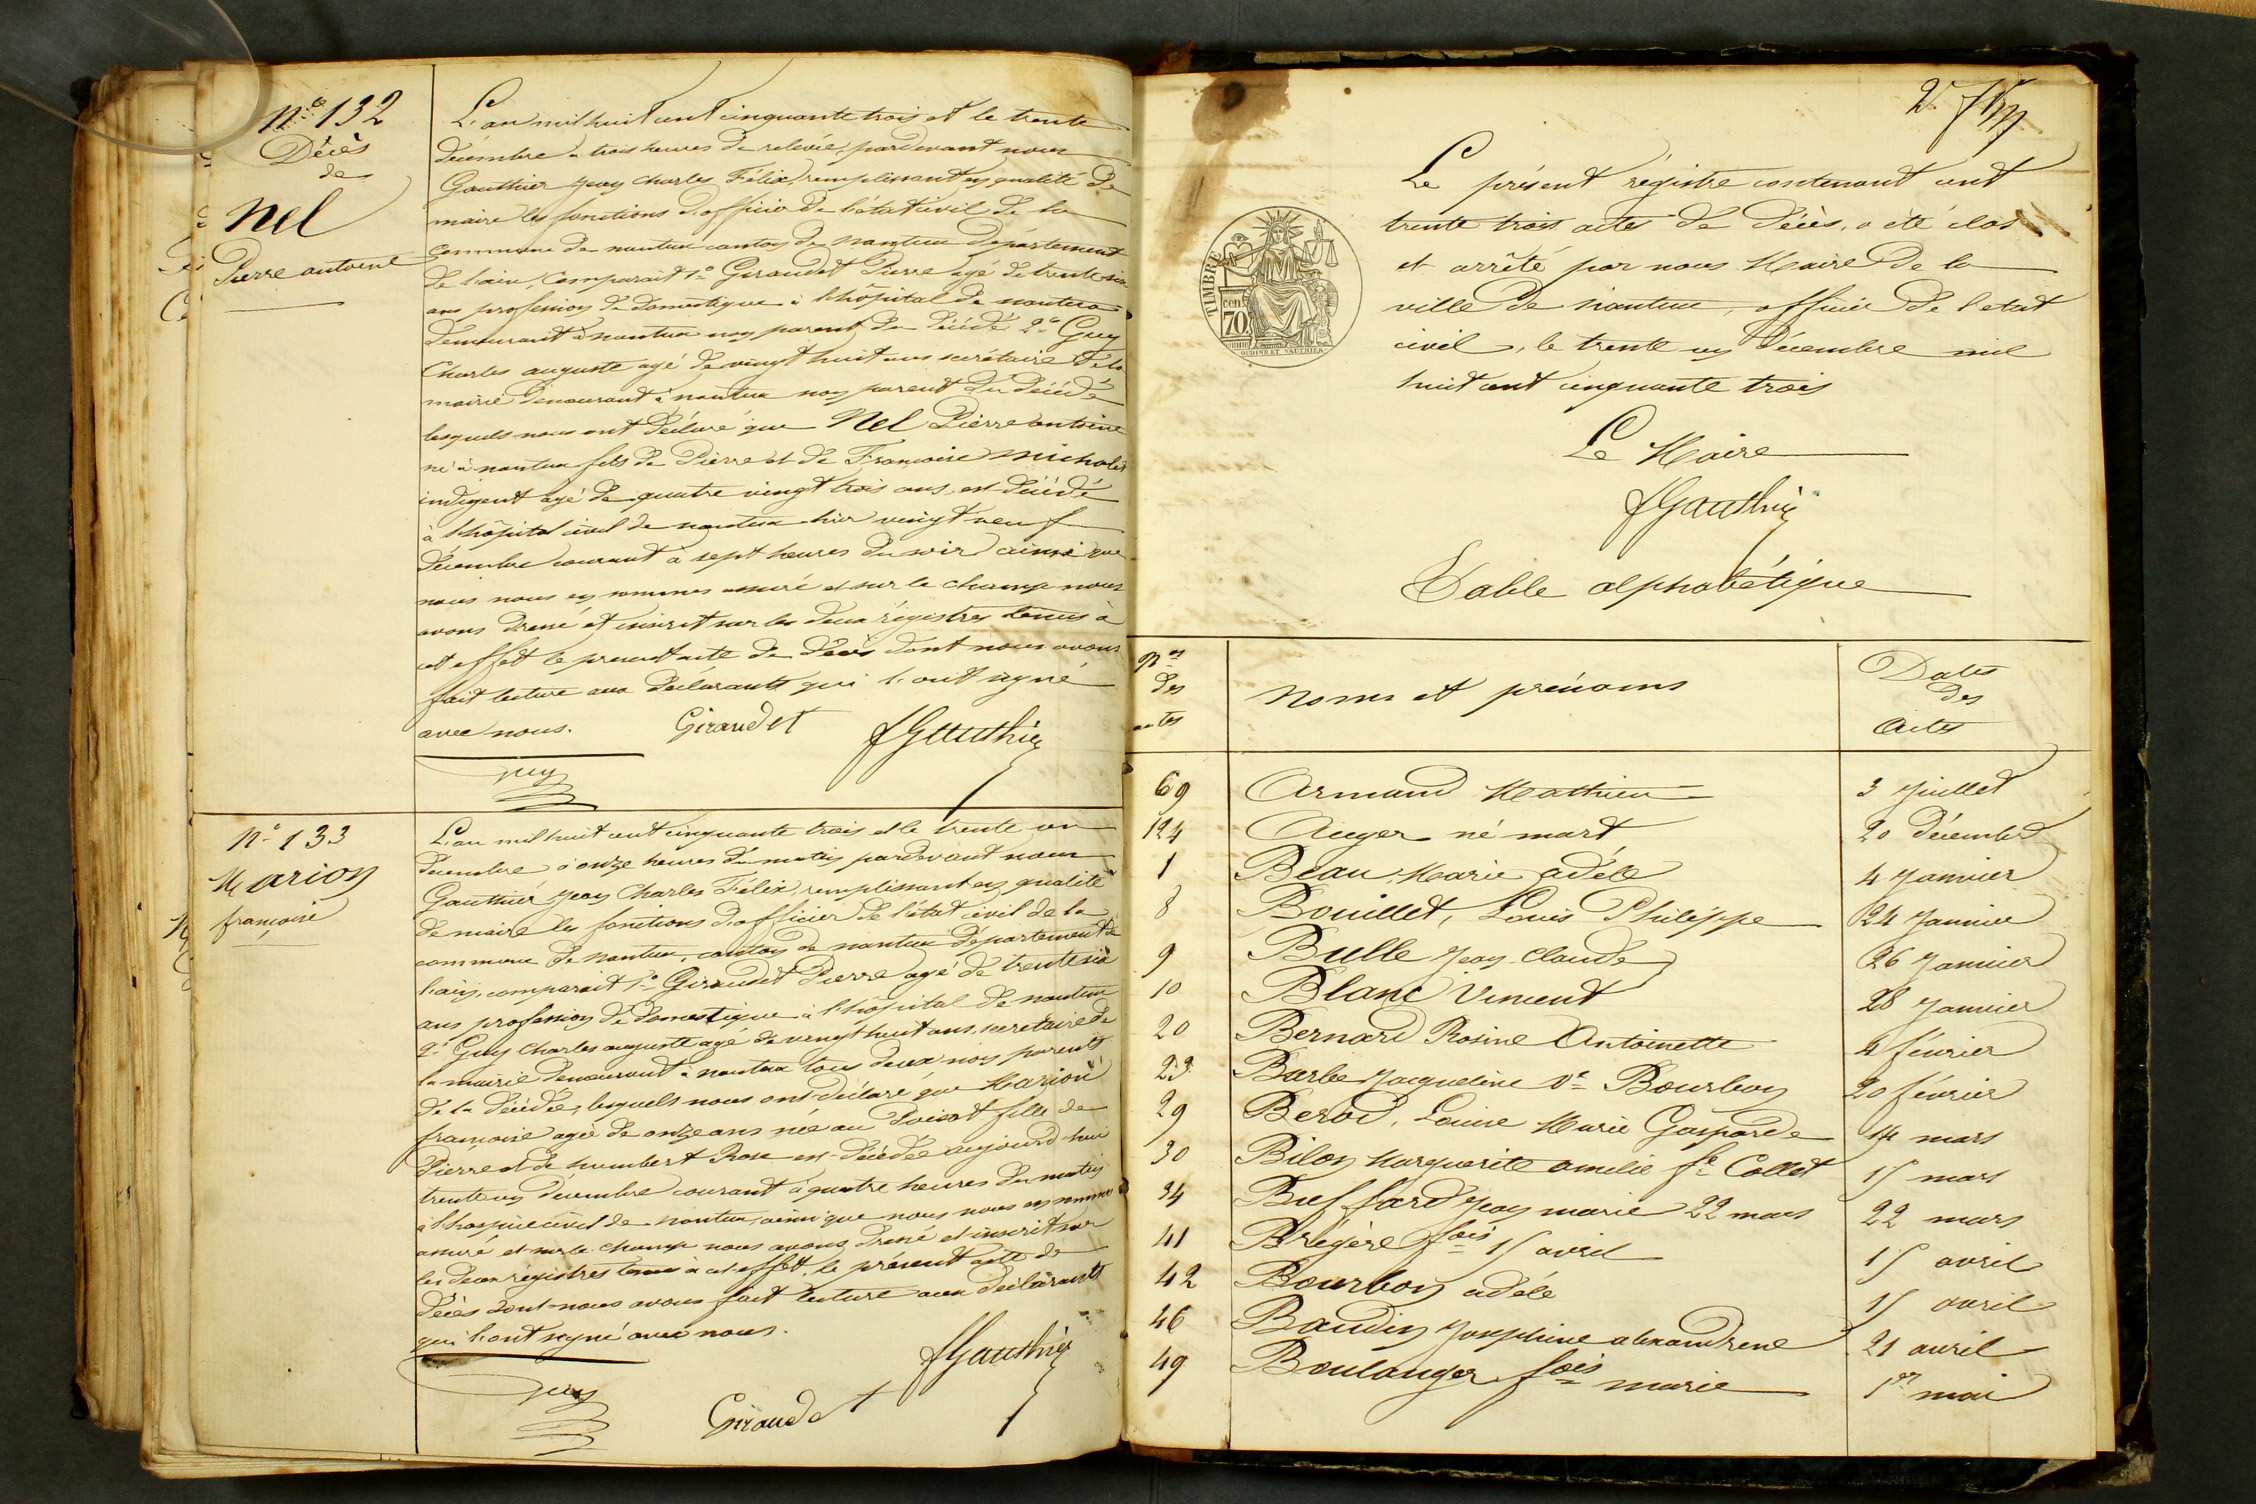 N.º 132
Décès
de
Nel
Pierre antoine
L'an mil huit cent cinquante trois et le trente
décembre à trois heures de relevée, pardevant nous
Gauthier Jean Charles Félix, remplissant en qualité de
maire les fonctions d'officier de l'état civil de la
commune de nantua canton de nantua département
de l'ain, Comparait 1º Giraudet Pierre agé de trente six
ans profession de domestique à l'hôpital de nantua
demeurant à nantua non parent du décédé 2º Guy
Charles auguste agé de vingt huit ans secrétaire de la
mairie demeurant à nantua non parent du décédé
lesquels nous ont déclaré que Nel Pierre antoine
né à nantua fils de Pierre et de Francoise michalet
indigent agé de quatre vingt trois ans, est décédé
à l'hôpital civil de nantua hier vingt neuf
décembre courant à sept heures du soir ainsi que
nous nous en sommes assuré et sur le champ nous
avons dressé et inscrit sur les deux régistres tenus à
cet effet le present acte de décès dont nous avons
fait lecture aux déclarants qui l'ont signé
avec nous.
Giraudet
fGauthier
Guy
Nº 133
Marion
francoise
L'an mil huit cent cinquante trois et le trente un
décembre à onze heures du matin pardevant nous
Gauthier Jean Charles Félix, remplissant en qualité
de maire les fonctions d'officier de l'état civil de la
commune de Nantua, canton de nantua département de
l'ain, comparait 1º Giraudet Pierre agé de trente six
ans profession de domestique à l'hôpital de nantua
2º Guy Charles auguste agé de vingt huit ans, secrétaire de
la mairie demeurant à nantua tous deux non parents
de la décédée, lesquels nous ont déclaré que Marion
francoise agée de onze ans née au Poizat fille de
Pierre et de humbert Rose est décédée aujourd'hui
trente un décembre courant à quatre heures du matin
à l'hospice civil de nantua, ainsi que nous nous en sommes
assuré et sur le champ nous avons dressé et inscrit sur
les deux régistres tenus à cet effet, le présent acte de
décès dont nous avons fait lecture aux déclarants
qui l'ont signé avec nous.
fGauthier
Guy
Giraudet
Le présent régistre contenant cent
trente trois actes de décès, a été clos
et arrêté par nous Maire de la
ville de nantua, officier de l'état
civil, le trente un décembre mil
huit cent cinquante trois
TIMBRE
cent.
70
OUDINE ET VAUTHIER
Le Maire
fGauthier
Table alphabétique
Nos des actes
Noms et prénoms
Dates des Actes
69 Armand Mathieu 3 Juillet
124 Auger né mort 20 décembre
1 Beau Marie adèle 4 Janvier
8 Bouillet, Louis Philippe 24 Janvier
9 Bulle Jean Claude 26 Janvier
10 Blanc Vincent 28 Janvier
20 Bernard Rosine Antoinette 4 février
23 Barbe Jacqueline Ve Bourbon 20 février
29 Berod, Louise Marie Gasparde 14 mars
30 Bilon Marguerite amelie fe Collet 15 mars
34 Buffard Jean marie 22 mars 22 mars
41 Brégère fois 15 avril 15 avril
42 Bourbon adéle 15 avril
46 Baudin Joséphine alexandrine 21 avril
49 Boulanger fois marie 1er mai